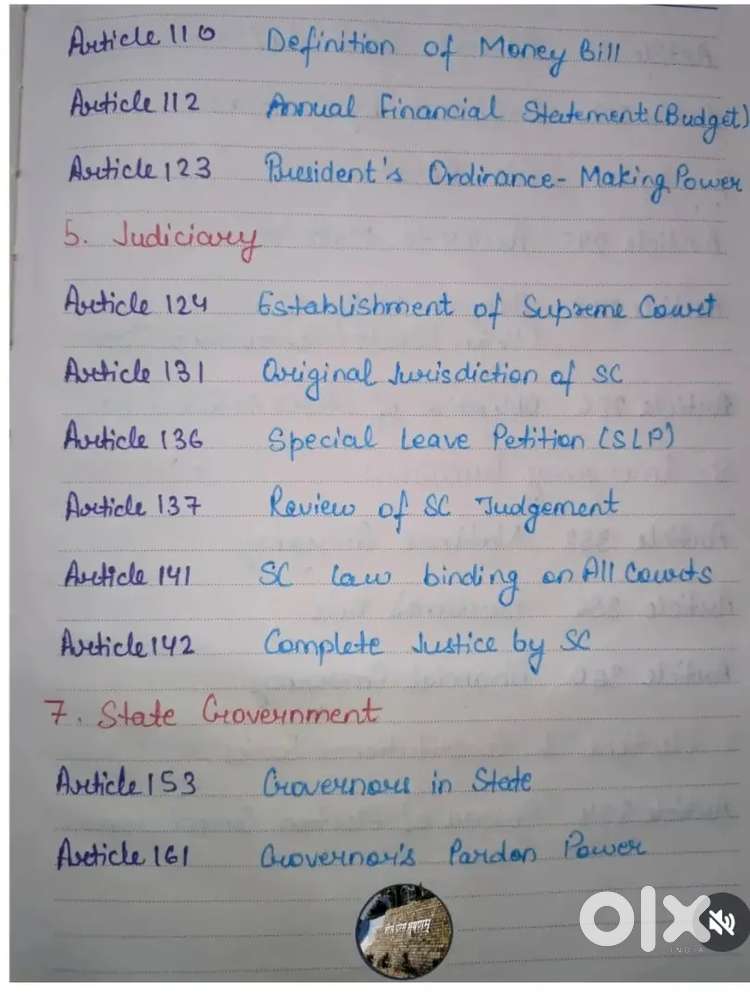 Article 110 Definition of Money Bill
Article 112 Annual Financial Statement (Budget)
Article 123 President's Ordinance-Making Power
5. Judiciary
Article 124 Establishment of Supreme Court
Article 131 Original Jurisdiction of SC
Article 136 Special Leave Petition (SLP)
Article 137 Review of SC Judgement
Article 141 SC law binding on All Courts
Article 142 Complete Justice by SC
7. State Government
Article 153 Governors in State
Article 161 Governor's Pardon Power
olx
INDIA